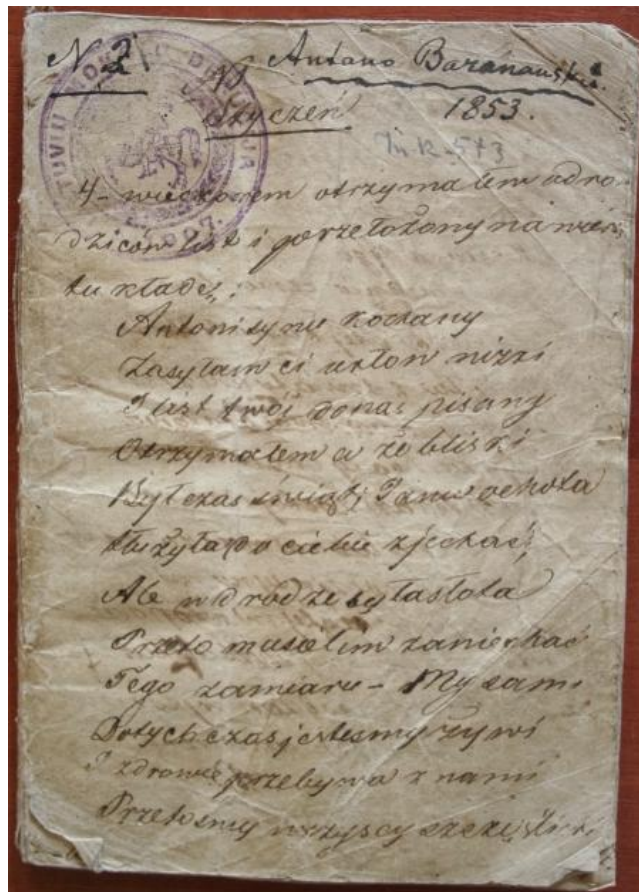 N 2
Antano Baranausko.
Styczeń 1853.
TUVIŲ MOKSLO DRAUGIJA
1907.
In. R. 573
4 - wieczorem otrzymałem od ro-
dziców list i przełożony na wiersz
tu kładę:
Antoni synu kochany
Zasyłam ci ukłon nizki
I list twój do nas pisany
Otrzymałem a że bliski
Był czas świąt; Panu ochota
służyła po ciebie zjechać
Ale w drodze była słota
Przeto musiałem zaniechać
Tego zamiaru - My sami
Dotychczas jesteśmy żywi
I zdrowie przebywa z nami
Przetośmy wszyscy szczęśliwi